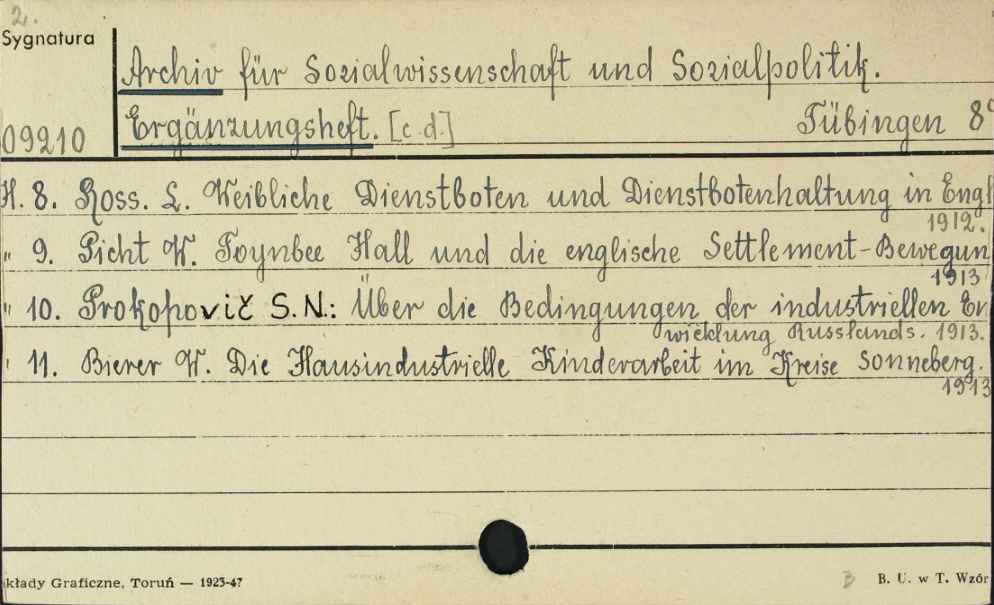 2.
Sygnatura
Archiv für Sozialwissenschaft und Sozialpolitik.
09210
Ergänzungsheft. [c.d.]
Tübingen 8°
H. 8. Ross. L. Weibliche Dienstboten und Dienstbotenhaltung in Engl
1912.
" 9. Picht W. Toynbee Hall und die englische Settlement-Bewegun
1913
" 10. Prokopovič S.N.: Über die Bedingungen der industriellen En
wicklung Russlands. 1913.
" 11. Bierer W. Die Hausindustrielle Kinderarbeit im Kreise Sonneberg.
1913
kłady Graficzne, Toruń — 1923-47
B
B. U. w T. Wzór